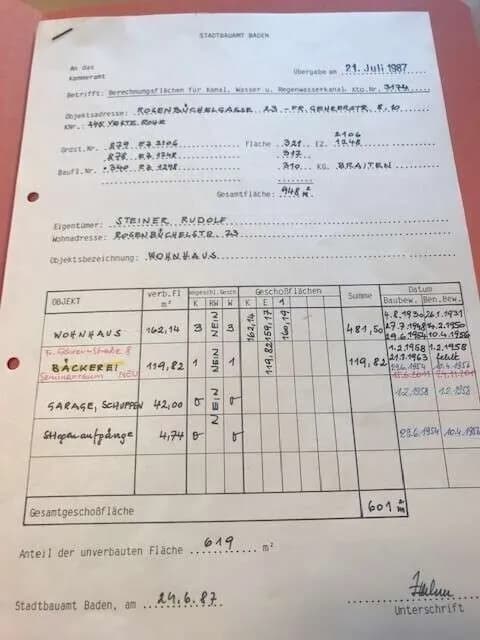 STADTBAUAMT BADEN
An das
Kammeramt
Übergabe am 21. Juli 1987
Betrifft: Berechnungsflächen für Kanal, Wasser u. Regenwasserkanal Kto.Nr. 3174
Objektsadresse: ROSENBÜCHELGASSE 23 - FR. GEHERERSTR. 8, 10
KNr.:
Grdst.Nr. 879 EZ 2106 Fläche 321 EZ. 2106
878 EZ 1248 317 1248
Baufl.Nr. .340 EZ 1248 310 KG. BRAITEN
Gesamtfläche: 948 m²
Eigentümer: STEINER RUDOLF
Wohnadresse: ROSENBÜCHELSTR. 23
Objektsbezeichnung: WOHNHAUS
OBJEKT verb.Fl m² Angeschl.Gesch K RW W Geschoßflächen K E 1 Summe Datum Baubew. Ben.Bew.
WOHNHAUS 162,14 3 NEIN 3 162,14 159,17 160,19 481,50 4.8.1930 26.1.1931
27.7.1948 14.2.1950
29.6.1954 10.4.1956
BÄCKEREI 119,82 1 NEIN 1 119,82 119,82 1.2.1958 1.2.1958
NEU 21.1.1963 fehlt
Seminarraum
GARAGE, SCHUPPEN 42,00 0 NEIN 0 1.2.1958 1.2.1958
Stiegenaufgänge 4,74 0 0 29.6.1954 10.4.195
Gesamtgeschoßfläche 601 m²
Anteil der unverbauten Fläche 619 m²
Stadtbauamt Baden, am 24.6.87
Unterschrift